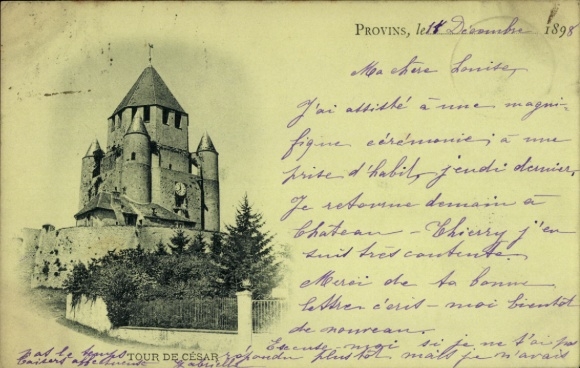 PROVINS, le 18 Décembre 1898
Ma chère Louise,
J'ai assisté à une magni-
fique cérémonie ; à une
prise d'habit, jeudi dernier,
Je retourne demain à
Château - Thierry j'en
suis très contente.
Merci de ta bonne
lettre écris - moi bientôt
de nouveau.
Excuse-moi si je ne t'ai pas
répondu plustôt mais je n'avais
pas le temps
Baisers affectueux
Gabrielle
TOUR DE CÉSAR